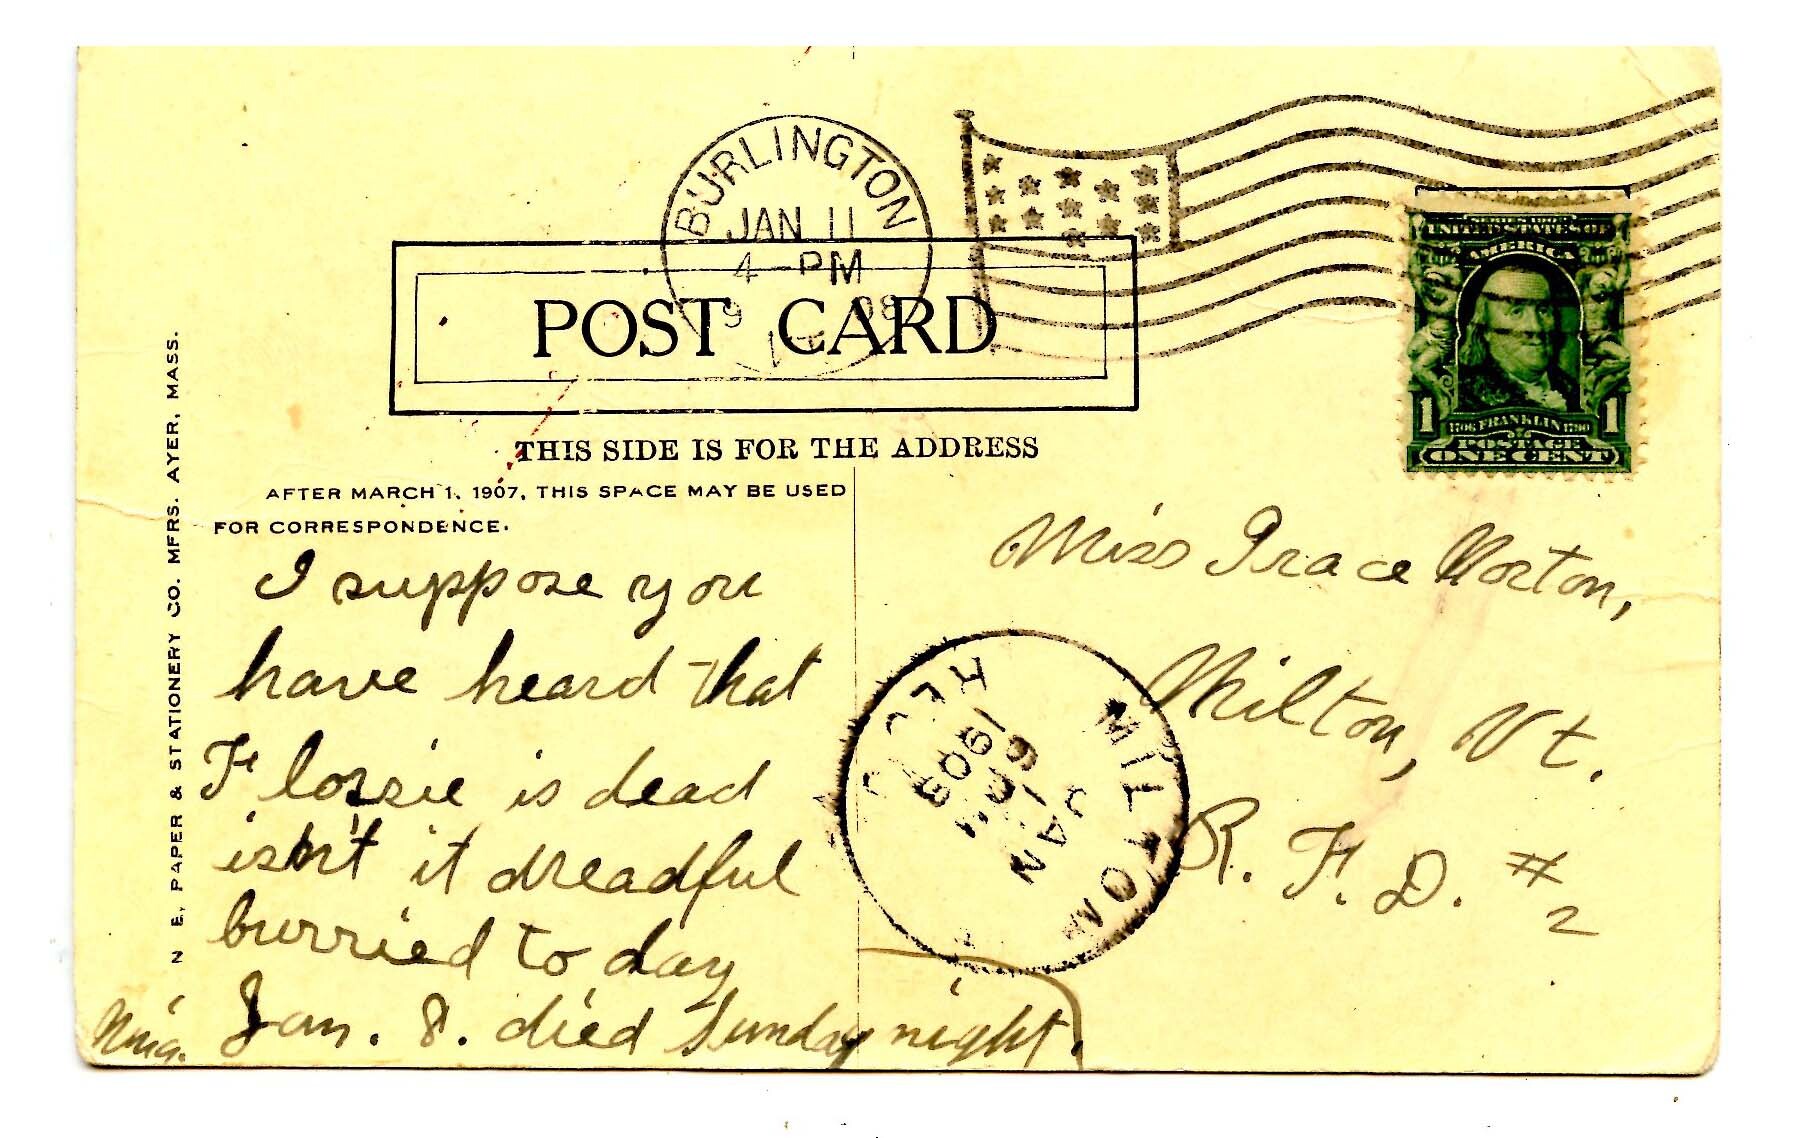 BURLINGTON
JAN 11
4 - PM
19 08
VT.
POST CARD
THIS SIDE IS FOR THE ADDRESS
AFTER MARCH 1, 1907, THIS SPACE MAY BE USED
FOR CORRESPONDENCE.
N. E. PAPER & STATIONERY CO. MFRS. AYER, MASS.
SERIES 1902
UNITED STATES OF
AMERICA
1 1
1706 FRANKLIN 1790
POSTAGE
ONE CENT
I suppose you
have heard that
Flossie is dead
isn't it dreadful
burried to day
Jan. 8. died Sunday night.
Nina.
Miss Grace Norton,
Milton, Vt.
R. F. D. #
2
MILTON
JAN
1908
REC'D